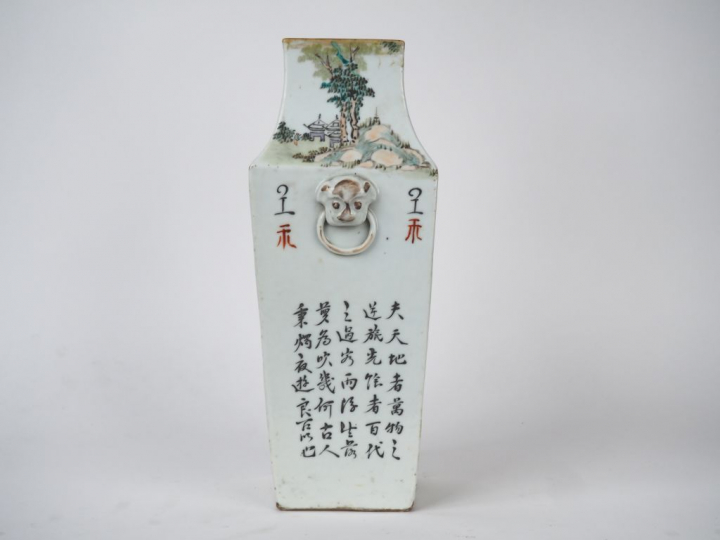 夫天地者萬物之
逆旅光陰者百代
之過客而浮生若
夢為歡幾何古人
秉燭夜遊良有以也